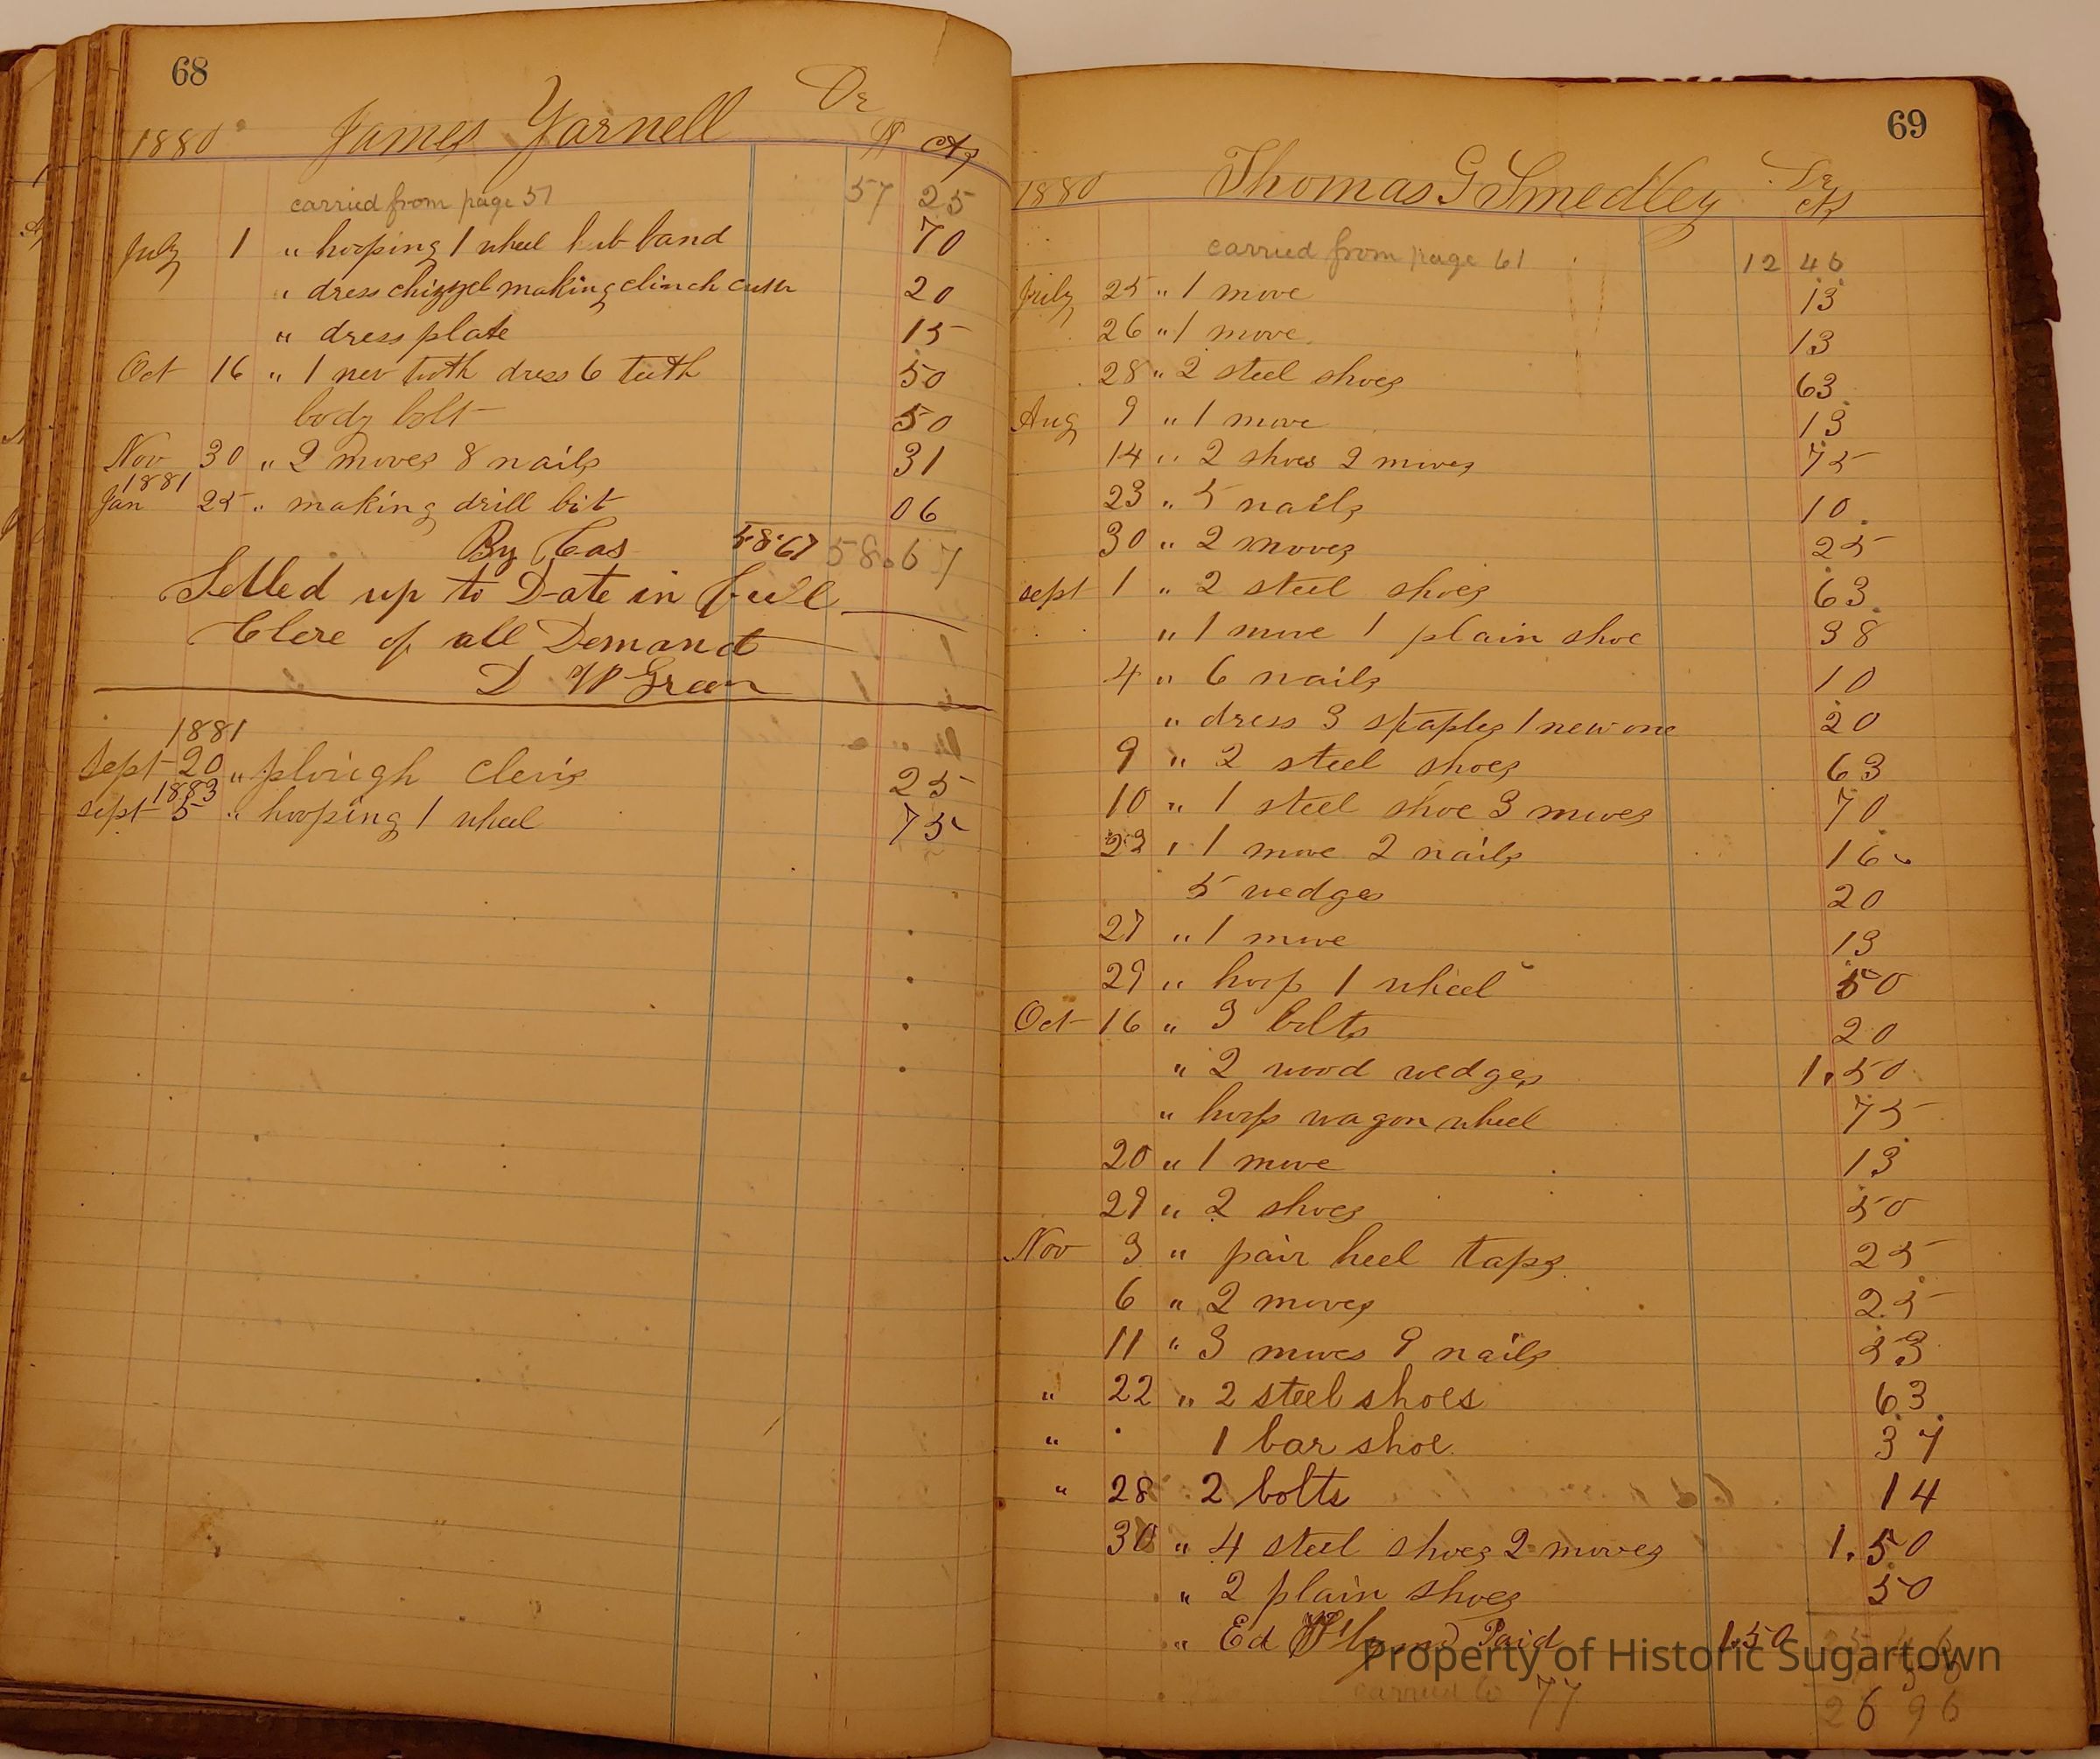 68
James Yarnell Dr
1880 $ cts
carried from page 51 57 25
July 1 " hooping 1 wheel hub band 70
" dress chizzel making clinch 20
" dress plate 15
Oct 16 " 1 new tooth dress 6 teeth 50
body bolt 50
Nov 30 " 2 moves 8 nails 31
1881
Jan 25 " making drill bit 06
By Cas 58.67 58.67
Setled up to Date in full
Clere of all Demand
D W Green
1881
Sept 20 " plough clevis 25
1883
sept 5 " hooping 1 wheel 75
69
1880 Thomas G Smedley Dr
cts
carried from page 61 12 46
July 25 " 1 move 13
26 " 1 move 13
28 " 2 steel shoes 63
Aug 9 " 1 move 13
14 " 2 shoes 2 moves 75
23 " 5 nails 10
30 " 2 moves 25
sept 1 " 2 steel shoes 63
" 1 move 1 plain shoe 38
4 " 6 nails 10
" dress 3 staples 1 new one 20
9 " 2 steel shoes 63
10 " 1 steel shoe 3 moves 70
22 " 1 move 2 nails 16
5 wedges 20
27 " 1 move 13
29 " hoop 1 wheel 50
Oct 16 " 3 bolts 20
" 2 wood wedges 1.50
" hoop wagon wheel 75
20 " 1 move 13
29 " 2 shoes 50
Nov 3 " pair heel taps 25
6 " 2 moves 25
11 " 3 moves 9 nails 53
" 22 " 2 steel shoes 63
" 1 bar shoe 37
" 28 2 bolts 14
30 " 4 steel shoes 2 moves 1.50
" 2 plain shoes 50
" Ed Paid 1.50
Property of Historic Sugartown
carried to 77 26 96